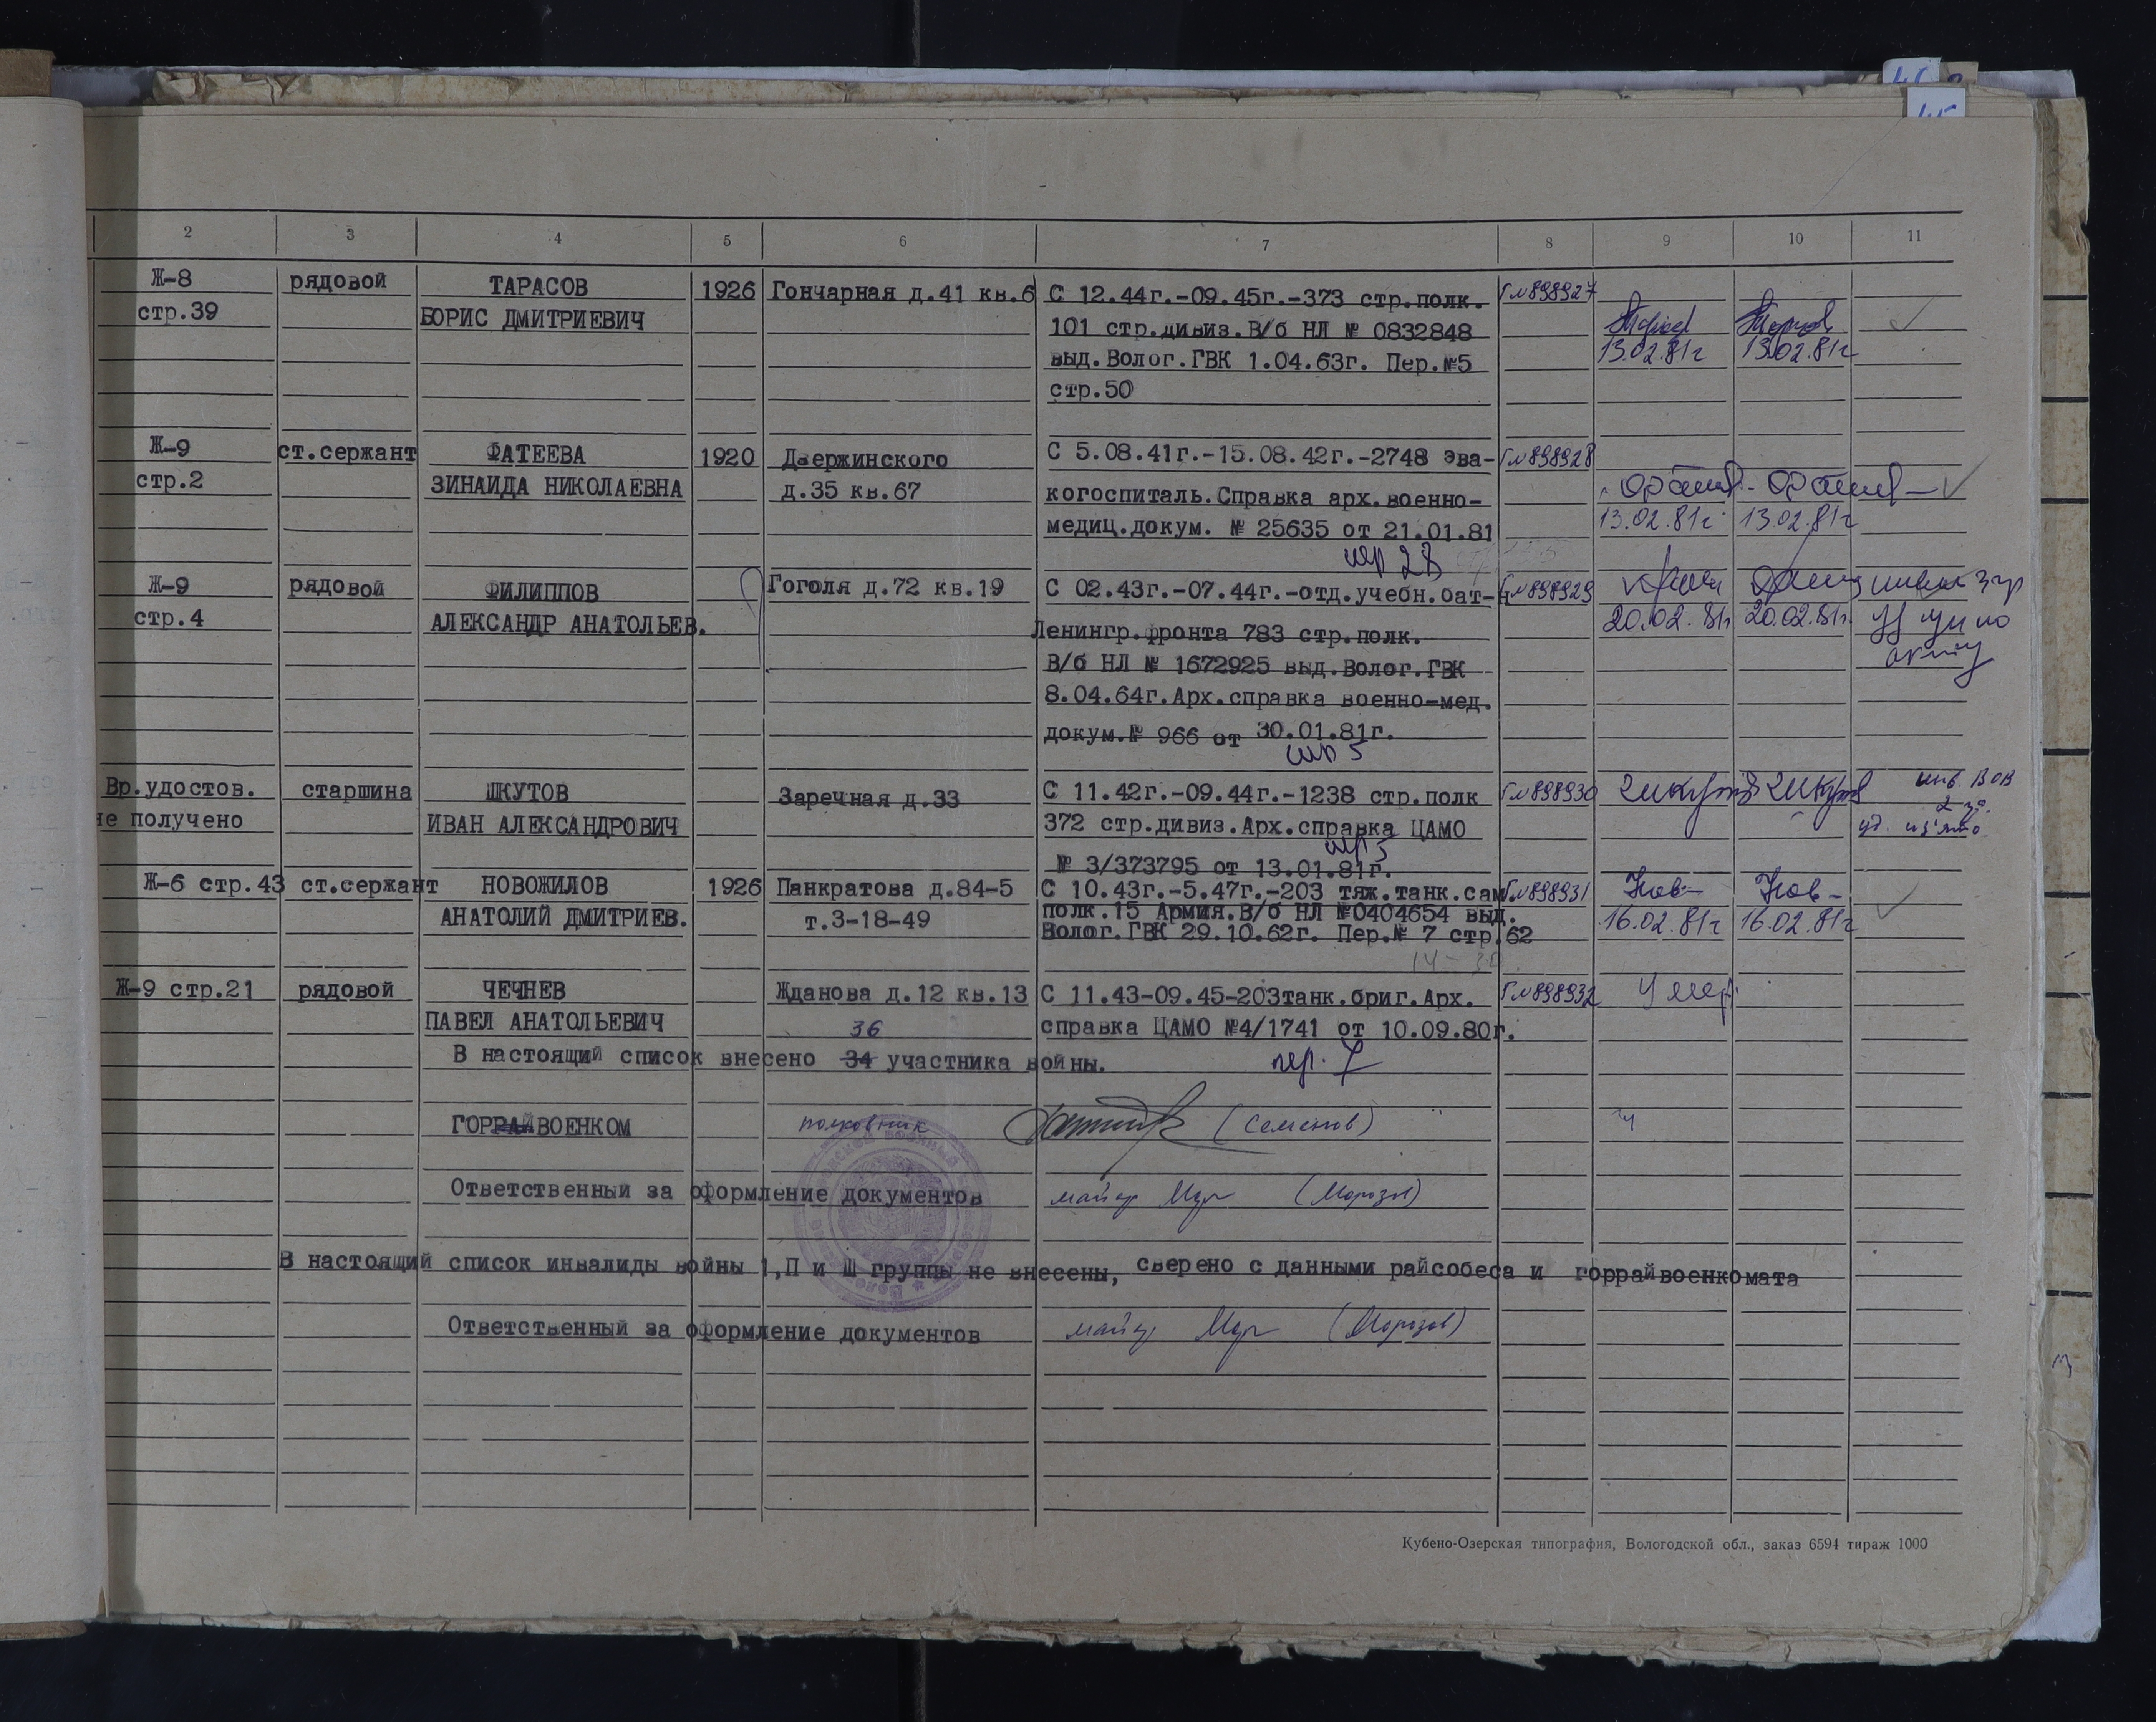 2 3 4 5 6 7 8 9 10 11
Ж-8 рядовой ТАРАСОВ 1926 Гончарная д.41 кв.6 С 12.44г.-09.45г.-373 стр.полк. Г№898927
стр.39 БОРИС ДМИТРИЕВИЧ 101 стр.дивиз.В/б НЛ № 0832848
13.02.81г 13.02.81г
выд.Волог.ГВК 1.04.63г. Пер.№5
стр.50
Ж-9 ст.сержант ФАТЕЕВА 1920 Дзержинского С 5.08.41г.-15.08.42г.-2748 эва- Г№898928
стр.2 ЗИНАИДА НИКОЛАЕВНА д.35 кв.67 когоспиталь.Справка арх.военно-
медиц.докум. № 25635 от 21.01.81 13.02.81г 13.02.81г
Ж-9 рядовой ФИЛИППОВ Гоголя д.72 кв.19 С 02.43г.-07.44г.-отд.учебн.бат-н Г№898929
стр.4 АЛЕКСАНДР АНАТОЛЬЕВ. Ленингр.фронта 783 стр.полк. 20.02.81г 20.02.81г.
В/б НЛ № 1672925 выд.Волог.ГВК
8.04.64г.Арх.справка военно-мед.
докум.№ 966 от 30.01.81г.
Вр.удостов. старшина ШКУТОВ Заречная д.33 С 11.42г.-09.44г.-1238 стр.полк Г№898930 инв. ВОВ
не получено ИВАН АЛЕКСАНДРОВИЧ 372 стр.дивиз.Арх.справка ЦАМО 2 гр.
уд. из'ято
№ 3/373795 от 13.01.81г.
Ж-6 стр.43 ст.сержант НОВОЖИЛОВ 1926 Панкратова д.84-5 С 10.43г.-5.47г.-203 тяж.танк.сам. Г№898931 Нов- Нов-
АНАТОЛИЙ ДМИТРИЕВ. т.3-18-49 полк.15 Армия.В/б НЛ №0404654 выд. 16.02.81г 16.02.81г
Волог.ГВК 29.10.62г. Пер.№ 7 стр.62
Ж-9 стр.21 рядовой ЧЕЧНЕВ Жданова д.12 кв.13 С 11.43-09.45-203танк.бриг.Арх. Г№898932 Умер.
ПАВЕЛ АНАТОЛЬЕВИЧ справка ЦАМО №4/1741 от 10.09.80г.
36
В настоящий список внесено 34 участника войны.
пер. 7
ГОРРАЙВОЕНКОМ полковник (Семенов)
Ответственный за оформление документов майор (Морозов)
В настоящий список инвалиды войны 1,П и Ш группы не внесены, сверено с данными райсобеса и горрайвоенкомата
Ответственный за оформление документов майор (Морозов)
Кубено-Озерская типография, Вологодской обл., заказ 6594 тираж 1000